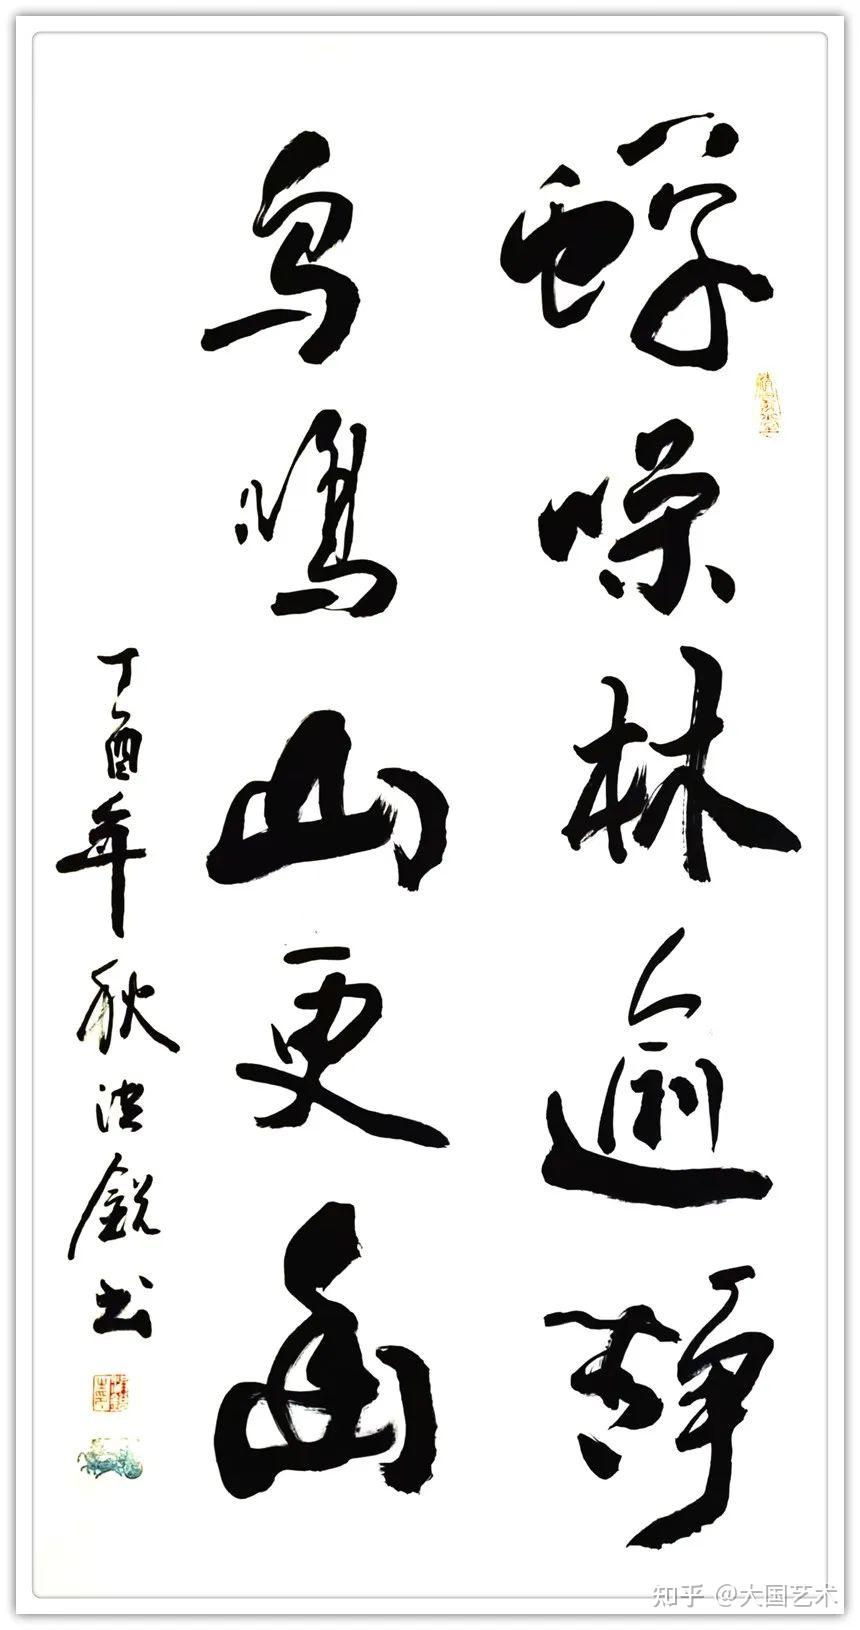 蟬噪林逾靜
鸟鳴山更幽
丁酉年秋洪銳书
知乎 @大国艺术